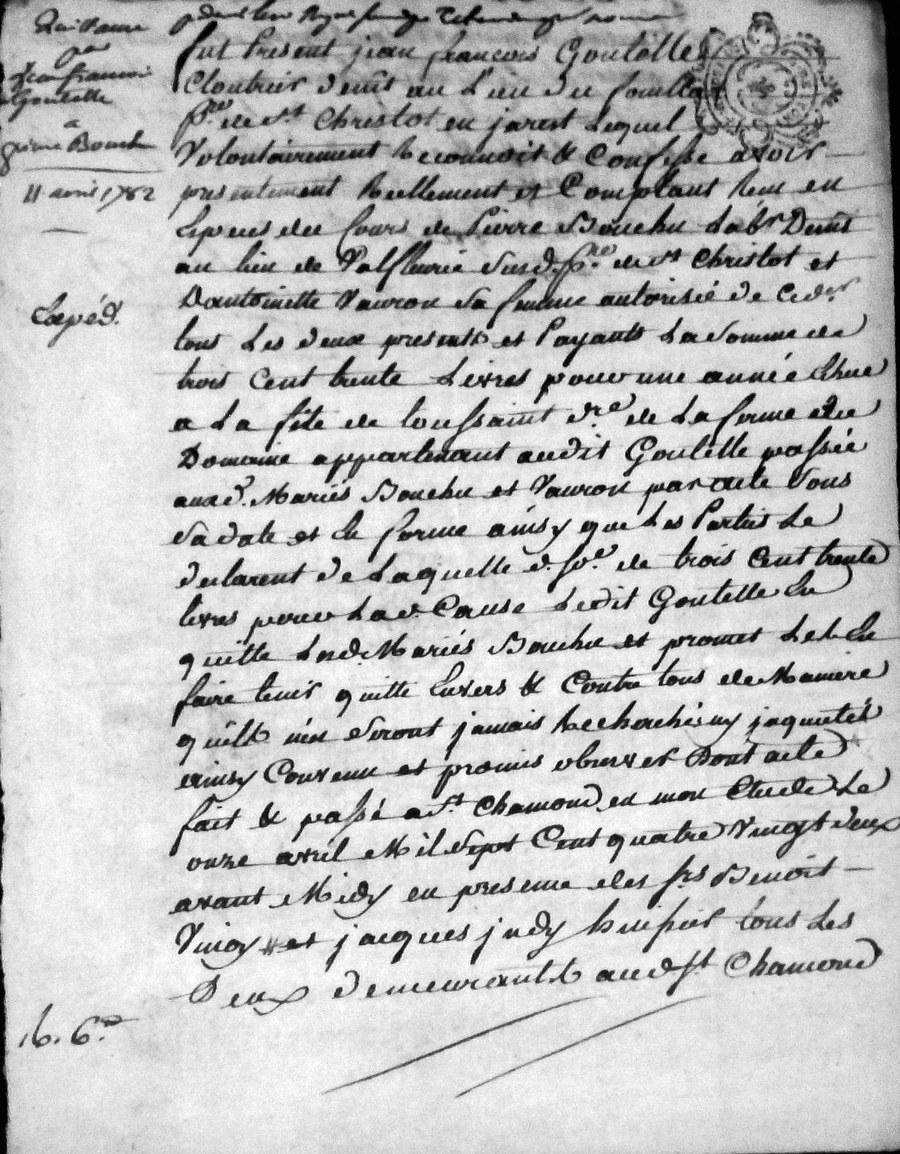 Quittance
par
Jean francois
Goutelle
a
pierre Bouchu
11 avril 1782
Expéd.
fut Present jean françois Goutelle
Cloutier demt au Lieu de
psse de St Christot en jarest Lequel
Volontairement Reconnoit & Confesse avoir
presentement Reellement et Comptant Reçu en
Especes du Cours de Pierre Bouchu Labr Demt
au lieu de Valfleurie susd. psse de St Christot et
D'antoinette Vauron sa femme autorisée de Ced.
tous Les deux presents et Payants La Somme de
trois Cent trente Livres pour une année Echue
a La fête de toussaint dre de La ferme du
Domaine appartenant audit Goutelle passée
auxd. Mariés Bouchu et Vauron par acte Sous
Sa date et En forme ainsy que Les Parties Le
declarent de Laquelle d. se. de trois Cent trente
livres pour Lad. Cause Ledit Goutelle En
quitte Lesd. Mariés Bouchu et promet Les En
faire tenir quitte Envers & Contre tous de Maniere
quils n'en Seront jamais Recherchés ny jnquietés
ainsy Convenu et promis observer Dont acte
fait & passé a St Chamond en mon Etude Le
onze avril Mil Sept Cent quatre Vingt deux
avant Midy en presence des srs Benoit
et jacques judy huissier tous Les
Deux demeurants aud. St Chamond
16. 6.